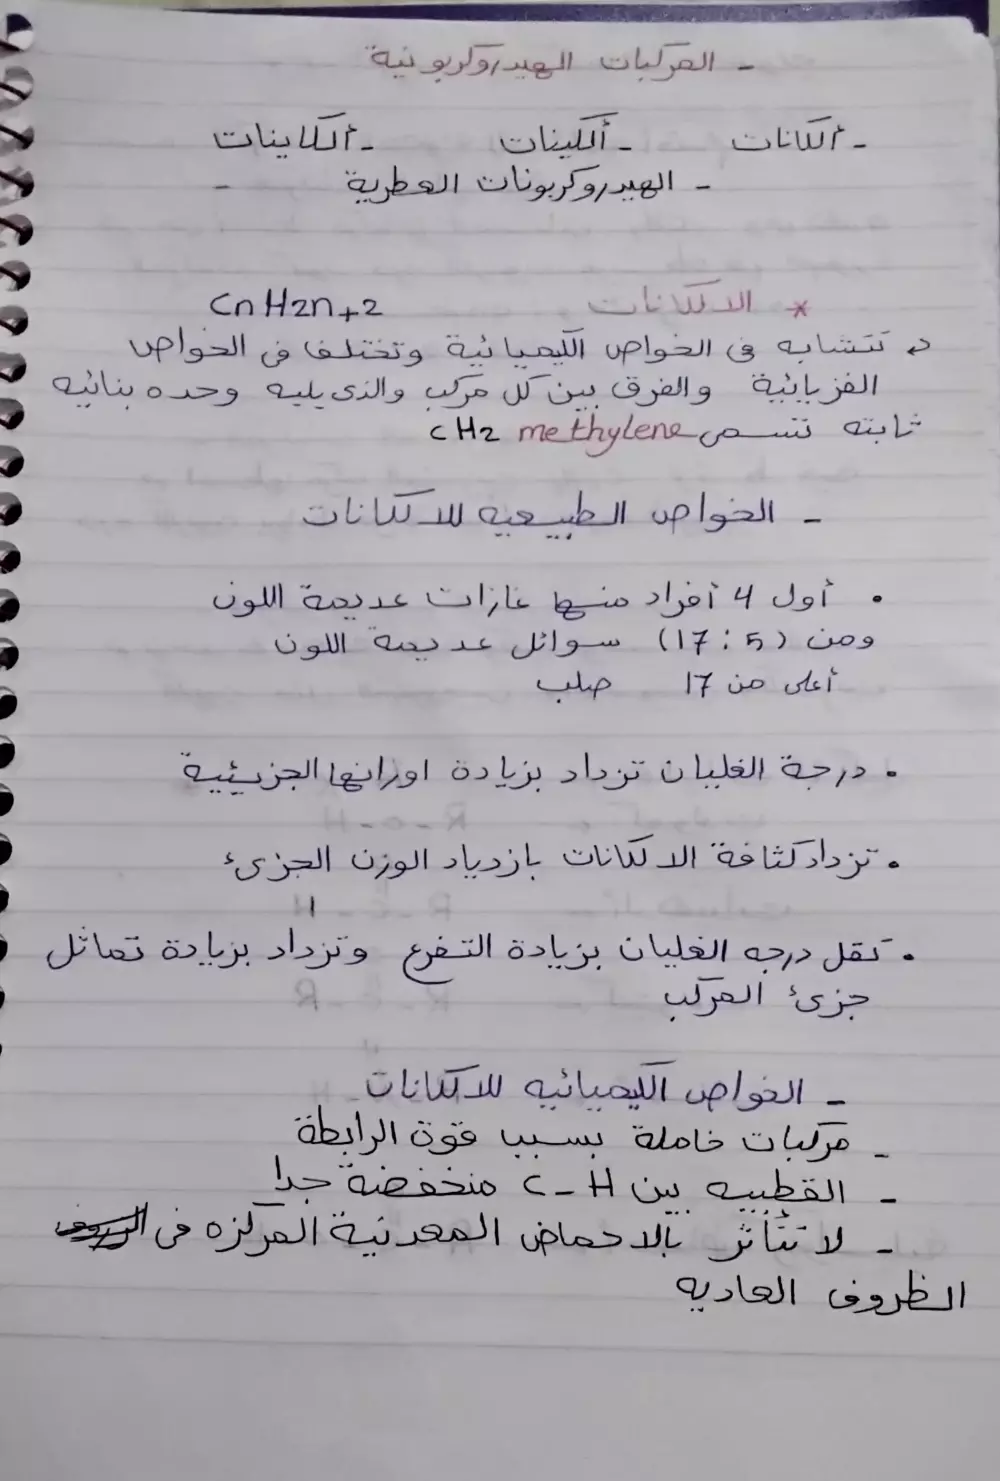 - المركبات الهيدروكربونية
- ألكانات - ألكينات - ألكاينات
- الهيدروكربونات العطرية -
* الالكانات CnH2n+2
تتشابه فى الخواص الكيميائية وتختلف فى الخواص
الفزيائية والفرق بين كل مركب والذى يليه وحده بنائيه
ثابته تسمى CH2 methylene
- الخواص الطبيعيه للالكانات
• أول 4 أفراد منها غازات عديمة اللون
ومن (5 : 17) سوائل عديمة اللون
أعلى من 17 صلب
• درجة الغليان تزداد بزيادة اوزانها الجزيئية
• تزداد كثافة الالكانات بازدياد الوزن الجزئ
• تقل درجه الغليان بزيادة التفرع وتزداد بزيادة تماثل
جزئ المركب
- الخواص الكيميائيه للالكانات
- مركبات خاملة بسبب قوة الرابطة
- القطبيه بين C-H منخفضة جدا
- لا تتأثر بالاحماض المعدنية المركزه فى
الظروف العاديه